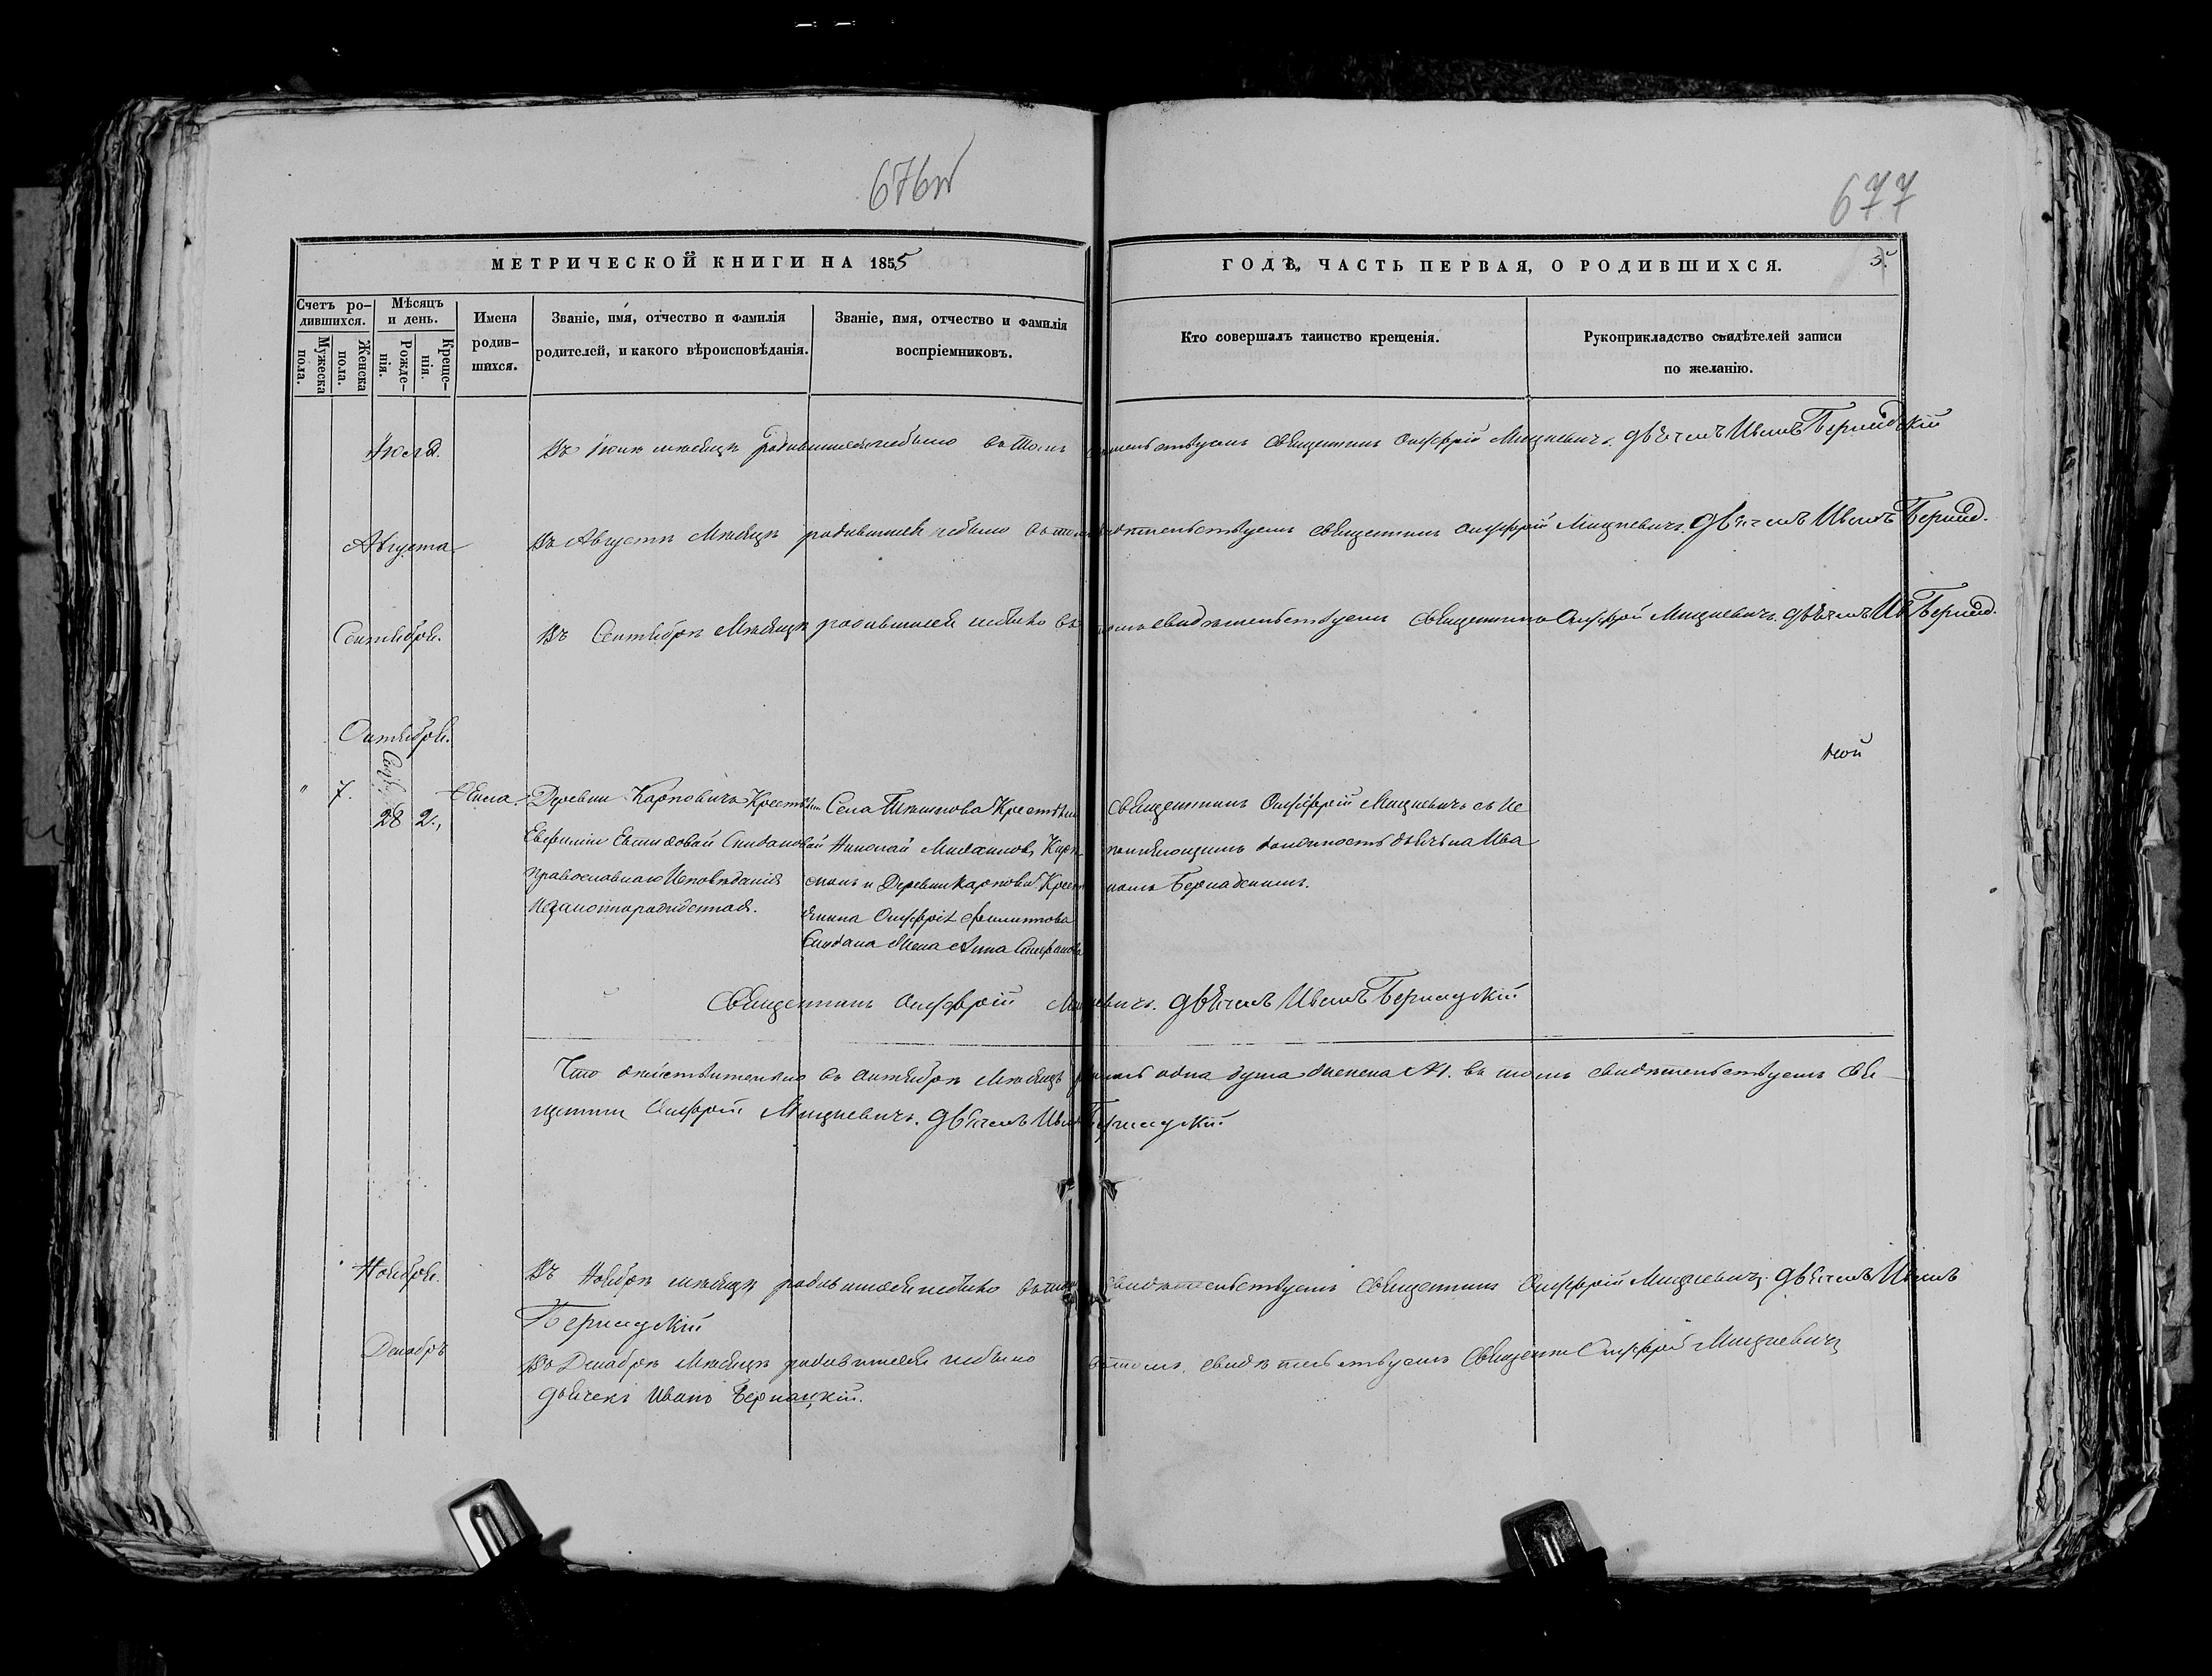 676об
677
МЕТРИЧЕСКОЙ КНИГИ НА 1855
ГОДЪ, ЧАСТЬ ПЕРВАЯ, О РОДИВШИХСЯ.
3.
Счетъ ро-
дившихся.
Мужеска
пола.
Женска
пола.
Мѣсяцъ
и день.
Рожде-
нія.
Креще-
нія.
Имена
родив-
шихся.
Званіе, имя, отчество и фамилія
родителей, и какого вѣроисповѣданія.
Званіе, имя, отчество и фамилія
воспріемниковъ.
Кто совершалъ таинство крещенія.
Рукоприкладство свидѣтелей записи
по желанію.
Въ мѣсяцѣ родившихся небыло въ томъ Священникъ Онуфрій Мицкевичъ. дьячекъ Иванъ
Августа
Въ Августѣ Мѣсяцѣ родившихся небыло въ томъ свидѣтельствуемъ Священникъ Онуфрій Мицкевичъ. дьячекъ Иванъ
Сентября.
Въ Сентябрѣ Мѣсяцѣ родившихся небыло въ томъ свидѣтельствуемъ Священникъ Онуфрій Мицкевичъ. дьячекъ Ив
Октября.
7.
28 2.
Деревни Карповичъ
Евфиміи Скидановой
Православнаго Исповѣданія
незаконнорожденная.
Села
Николай
и Деревни
Онуфрія Филиппова
Скидана жена Анна Стефанова
Священникъ Онуфрій Мицкевичъ съ Ис
правляющимъ должность дьячка Ива
номъ
Священникъ Онуфрій Мицкевичъ. дьячекъ Иванъ Бернацкій
Что дѣйствительно въ Октябрѣ Мѣсяцѣ одна душа женска въ томъ свидѣтельствуемъ Свя-
щенникъ Онуфрій Мицкевичъ. дьячекъ Иванъ Бернацкій
Ноября.
Въ Ноябрѣ мѣсяцѣ родившихся небыло въ томъ свидѣтельствуемъ Священникъ Онуфрій Мицкевичъ. дьячекъ Иванъ
Бернацкій
Декабрь
Въ Декабрѣ Мѣсяцѣ родившихся небыло въ томъ свидѣтельствуемъ Священникъ Онуфрій Мицкевичъ
дьячекъ Иванъ Бернацкій.